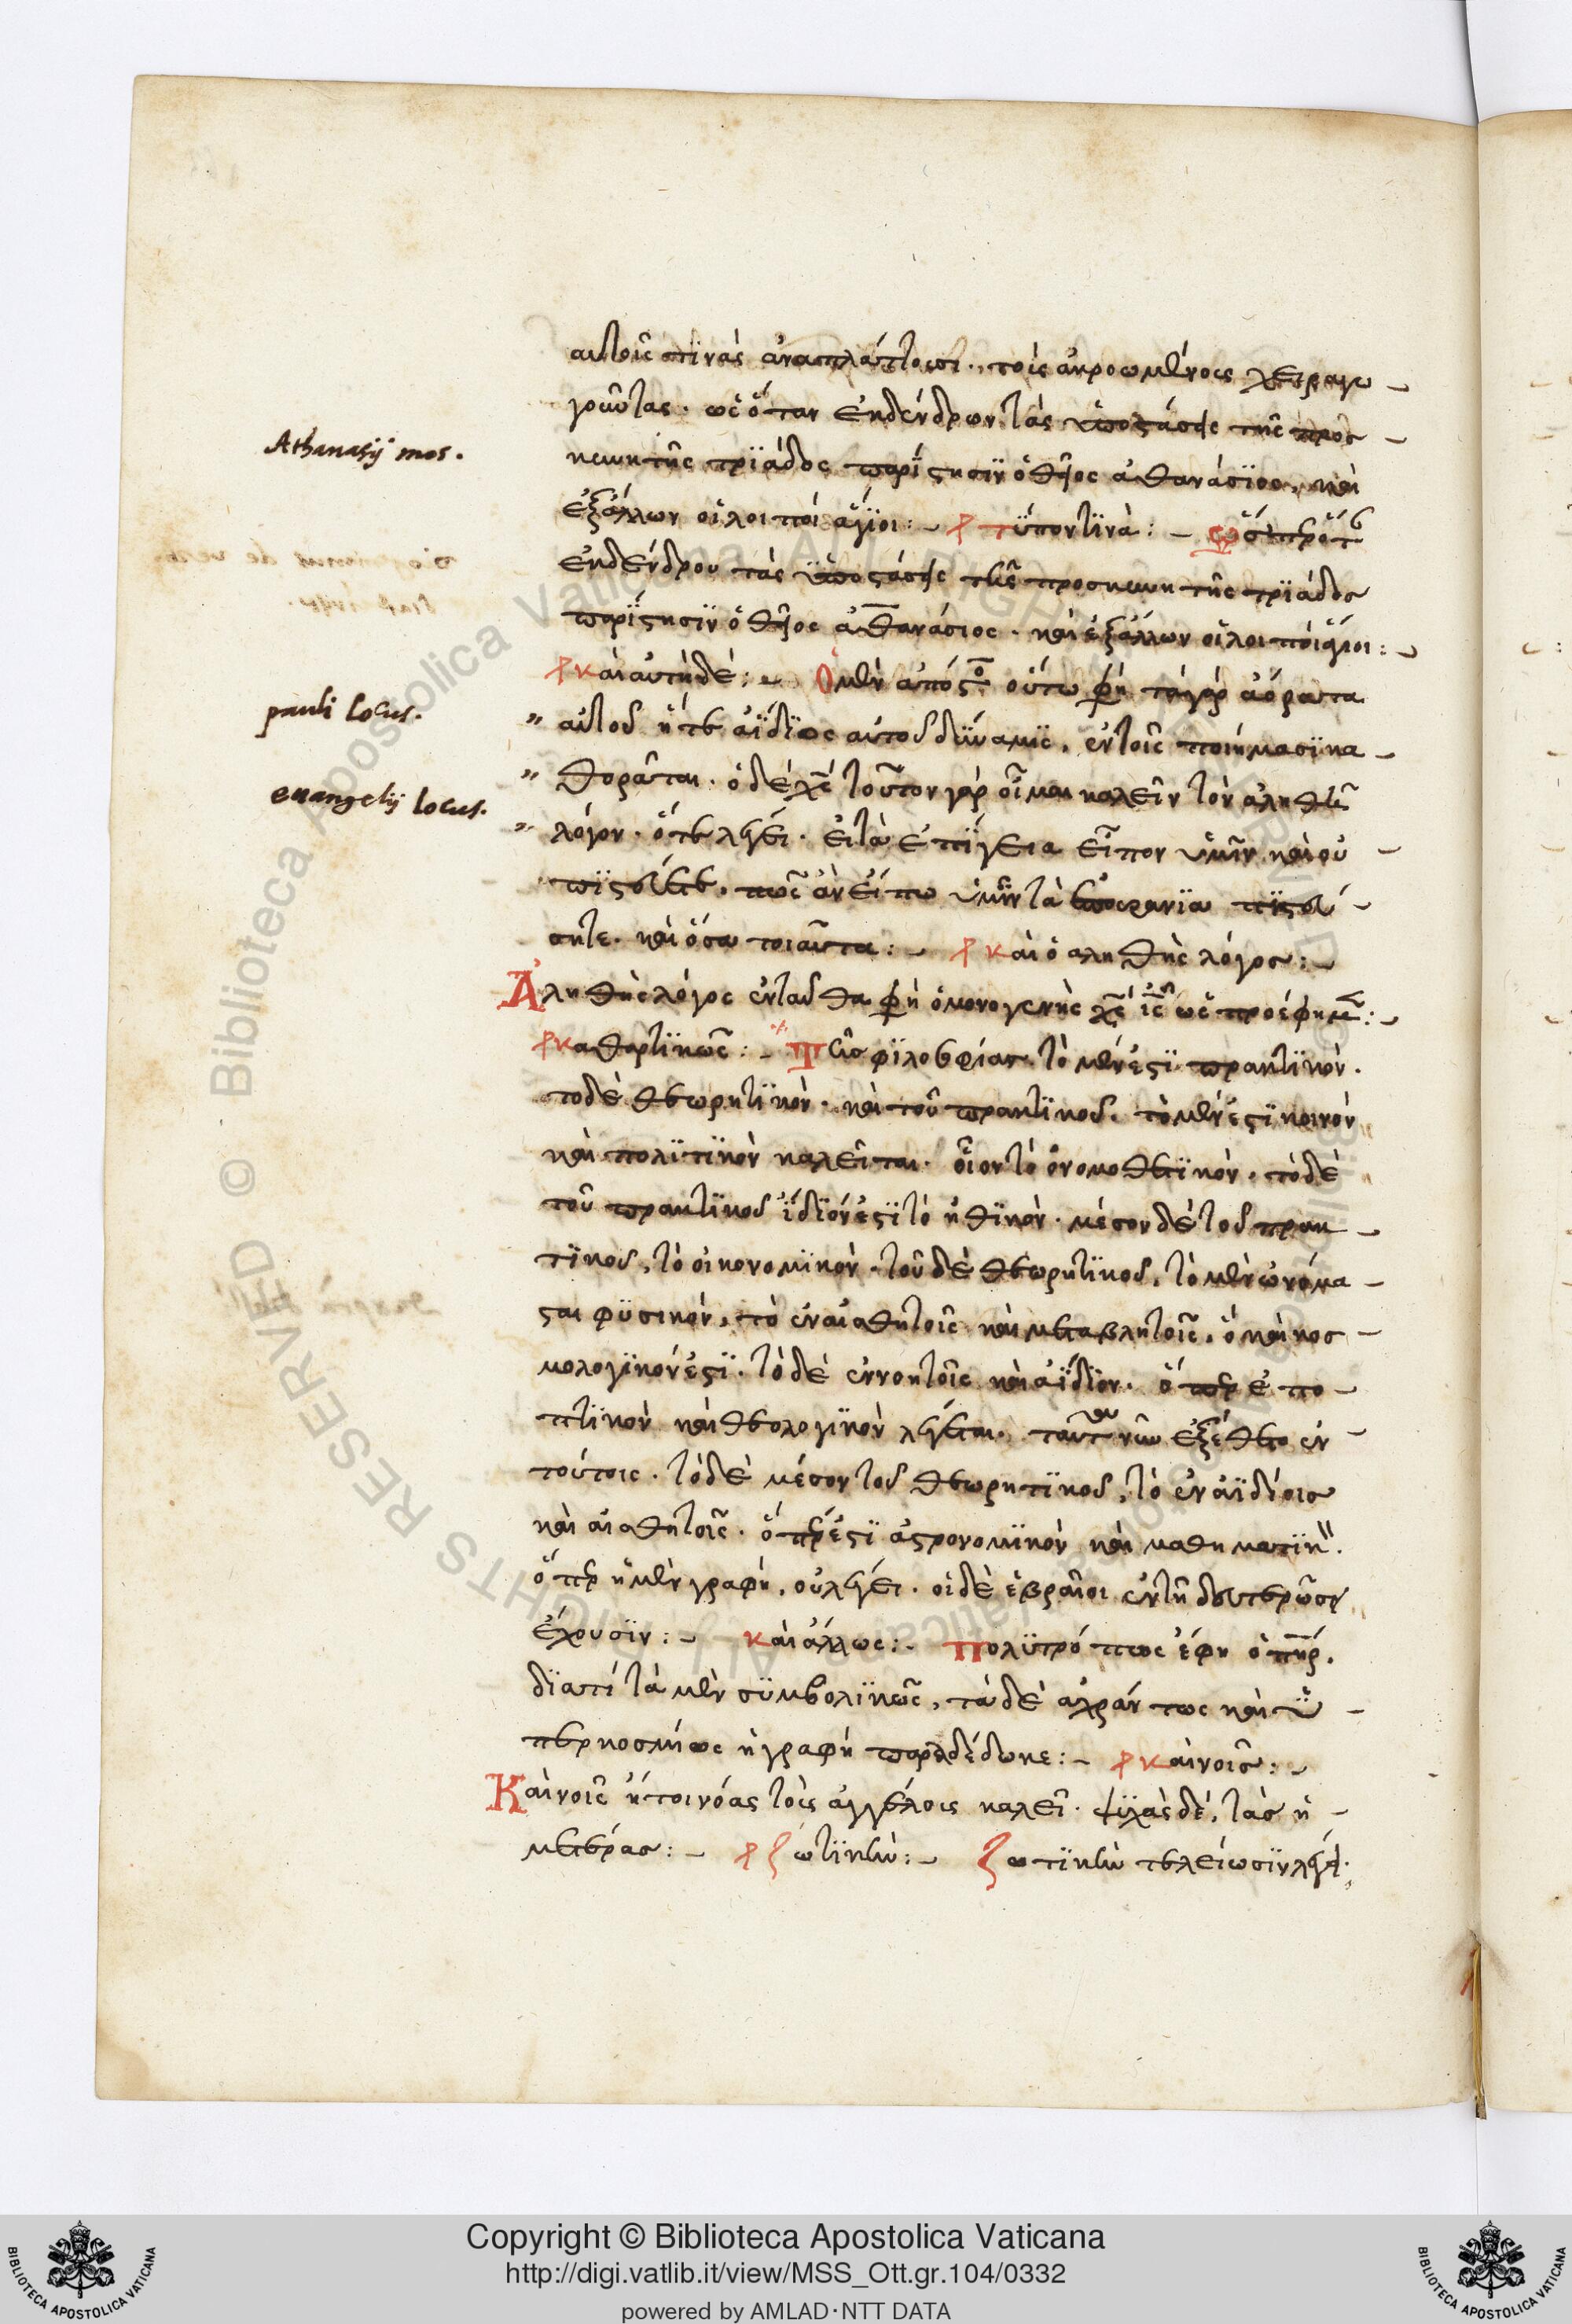 αὐτοῖς τινὰς ἀναπλάττουσι. τοῖς ἀκροωμένοις χειραγω-
γοῦντας. ὡς ὅταν ἐκ δένδρων τὰς ὑποστάσεις τῆς προσ-
Athanasij mos.
κυνητῆς τριάδος παρίστησιν ὁ θεῖος ἀθανάσιος, καὶ
ἐξ ἄλλων οἱ λοιποὶ ἅγιοι:- τύπον τινὰ:-
ἐκ δένδρου τὰς ὑποστάσεις τῆς προσκυνητῆς τριάδος
παρίστησιν ὁ θεῖος ἀθανάσιος. καὶ ἐξ ἄλλων οἱ λοιποὶ ἅγιοι:-
καὶ αὐτὴ δέ:- Ὁ μὲν ἀπόστο οὕτω φη τὰ γὰρ ἀόρατα
pauli locus.
" αὐτοῦ ἥτε ἀΐδιος αὐτοῦ δύναμις, ἐν τοῖς ποιήμασι κα-
" θορᾶται. ὁ δὲ χς τοῦτον γὰρ οἶμαι καλεῖν τὸν ἀληθῆ
euangelij locus.
" λόγον. ὅτε λέγει. εἰ τὰ ἐπίγεια εἶπον ὑμῖν καὶ οὐ
πιστεύετε, πῶς ἂν εἴπω ὑμῖν τὰ ἐπουράνια πιστεύ-
σητε. καὶ ὅσα τοιαῦτα:- καὶ ὁ ἀληθὴς λόγος:-
Ἀληθὴς λόγος ἐνταῦθα φη ὁ μονογενὴς χς ις ὡς προέφημεν:-
καθαρτικῶς:- Τῆς φιλοσοφίας, τὸ μέν ἐστι πρακτικὸν.
τὸ δὲ θεωρητικὸν. καὶ τοῦ πρακτικοῦ, τὸ μέν ἐστι κοινὸν
καὶ πολιτικὸν καλεῖται. οἷον τὸ νομοθετικὸν. τὸ δὲ
τοῦ πρακτικοῦ ἴδιόν ἐστι τὸ ἠθικὸν. μέσον δὲ τοῦ πρακ-
τικοῦ, τὸ οἰκονομικὸν. τοῦ δὲ θεωρητικοῦ, τὸ μὲν ὠνόμα-
σται φυσικὸν, τὸ ἐν αἰσθητοῖς καὶ μεταβλητοῖς, ὃ καὶ κοσ-
μολογικόν ἐστι. τὸ δὲ ἐν νοητοῖς καὶ ἀΐδιον. ὅπερ ἐπο-
πτικὸν καὶ θεολογικὸν λέγεται. ταῦτα νῦν ἐξέθετο ἐν
τούτοις. τὸ δὲ μέσον τοῦ θεωρητικοῦ, τὸ ἐν ἀϊδίοις
καὶ αἰσθητοῖς. ὅπερ ἐστὶ ἀστρονομικὸν καὶ μαθηματικ.
ὅπερ ἡ μὲν γραφὴ, οὐ λέγει. οἱ δὲ ἑβραῖοι ἐν τῇ δευτερώσει
ἔχουσιν:- καὶ ἄλλως:- Πολυτρόπως ἔφη ὁ πηρ.
διατί τὰ μὲν συμβολικῶς, τὰ δὲ ἀχράντως καὶ ὑ-
περκοσμίως ἡ γραφὴ παραδέδωκε:- καὶ νοῦς:-
Καὶ νοῦς ἤτοι νόας τοὺς ἀγγέλους καλεῖ. ψυχὰς δὲ, τὰς ἡ-
μετέρας:- ζωτικὴν:- Ζωτικὴν τελείωσιν λέγει.
Copyright © Biblioteca Apostolica Vaticana
http://digi.vatlib.it/view/MSS_Ott.gr.104/0332
powered by AMLAD·NTT DATA